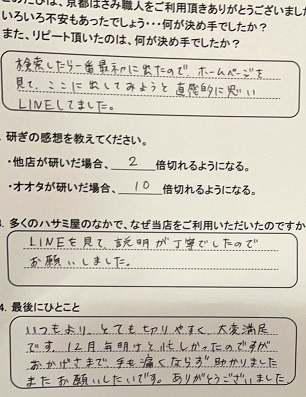 このたびは、京都はさみ職人をご利用頂きありがとうございまし
いろいろ不安もあったでしょう・・・何が決め手でしたか?
また、リピート頂いたのは、何が決め手でしたか?
検索したら一番最初に出たので、ホームページを
見て、ここに出してみようと直感的に思い
LINEしてました。
研ぎの感想を教えてください。
・他店が研いだ場合、 2 倍切れるようになる。
・オオタが研いだ場合、 10 倍切れるようになる。
3. 多くのハサミ屋のなかで、なぜ当店をご利用いただいたのですか
LINEを見て説明が丁寧でしたので
お願いしました。
4. 最後にひとこと
いつもより、とても切りやすく、大変満足
です。12月毎明けと忙しかったのですが
おかげさまで、手も痛くならず助かりました
またお願いしたいです。ありがとうございました